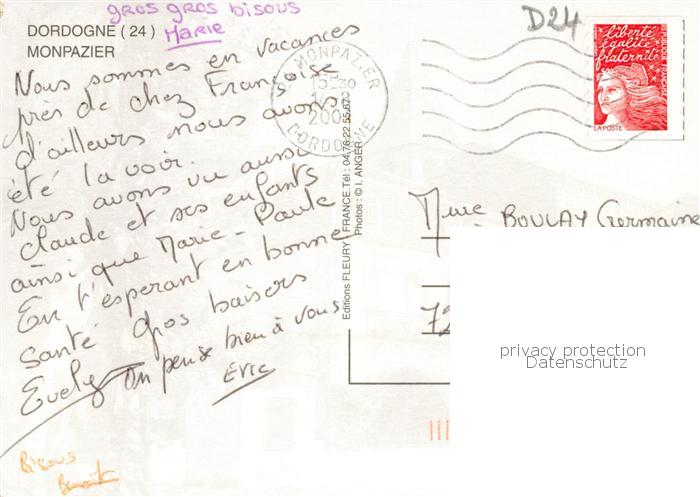 gros gros bisous
MARIE
DORDOGNE (24)
MONPAZIER
D24
Nous sommes en vacances
près de chez Françoise
d'ailleurs nous avons
été la voir.
Nous avons vu aussi
Claude et ses enfants
ainsi que Marie-Paule
En t'esperant en bonne
santé Gros baisers
Evelyn
On pense bien à vous
Eric
Bisous
Benoit
MONPAZIER
15-30
200
DORDOGNE
liberté
égalité
fraternité
REPUBLIQUE FRANÇAISE
LA POSTE
Editions FLEURY - FRANCE.Tél : 04.78.22.55.67
Photos : © I. ANGER
Mme BOULAY Germaine
72
privacy protection
Datenschutz